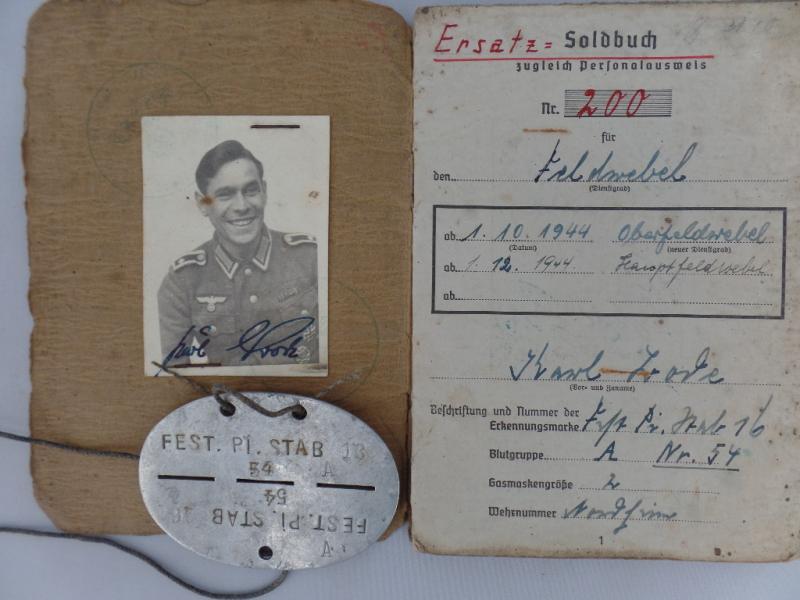 Karl
FEST. PI. STAB 16
54 A
54
FEST. PI. STAB 16
A
Ersatz= Soldbuch
zugleich Personalausweis
Nr. 200
für
den Feldwebel
(Dienstgrad)
ab 1.10.1944 Oberfeldwebel
(Datum) (neuer Dienstgrad)
ab 1.12.1944 Hauptfeldwebel
ab
Karl
(Vor- und Zuname)
Beschriftung und Nummer der
Erkennungsmarke Fest. Pi. Stab 16
Blutgruppe A Nr. 54
Gasmaskengröße 2
Wehrnummer
1